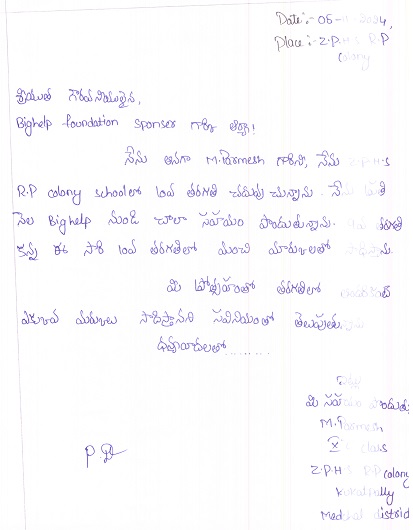 Date:- 05-11-2024,
Place:- Z.P.H.S R.P
colony
శ్రీయుత గౌరవనీయులైన,
Bighelp foundation sponser గారికి ఆర్యా!
నేను అనగా M.Parmesh గారిని, నేను Z.P.H.S
R.P colony schoolలో 10వ తరగతి చదువు చున్నాను. నేను ప్రతి
నెల Bighelp నుండి చాలా సహాయం పొందుతున్నాను. 9వ తరగతి
కన్న ఈ సారి 10వ తరగతిలో మంచి మార్కులతో సాధిస్తాను.
మి ప్రోత్సాహంతో తరగతిలో అందరికంటే
ఎక్కువ మార్కులు సాధిస్తానని సవినియంతో తెలుపుతున్నాను
ధన్యవాదలతో.........
మి సహాయం పొందుతు
M.Parmesh
X class
Z.P.H.S R.P colony
Kukatpally
Medchal district